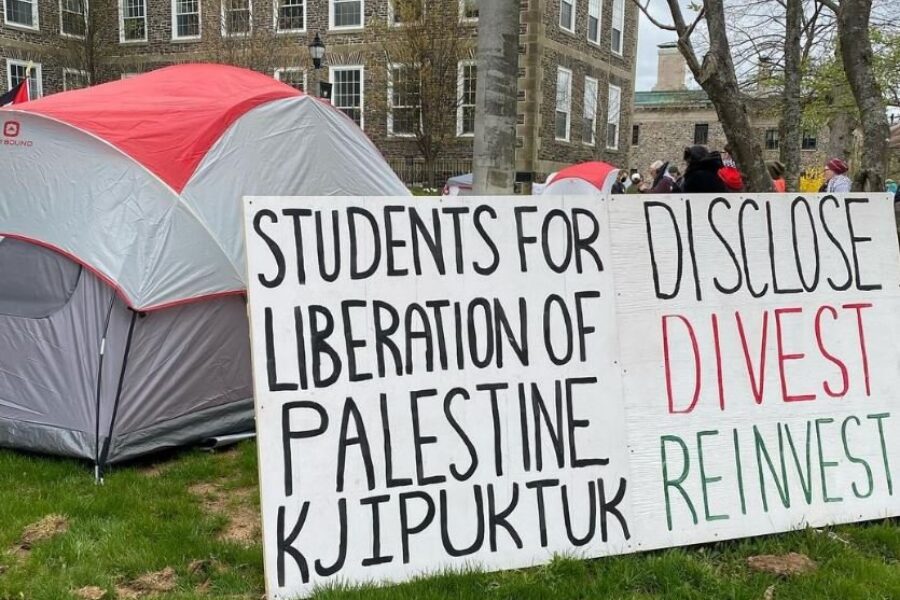 SOUND
STUDENTS FOR
LIBERATION OF
PALESTINE
KJIPUKTUK
DISCLOSE
DIVEST
REINVEST